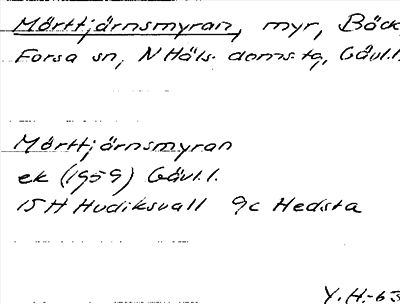 Mörttjärnsmyran, myr, Bäck
Forsa sn, N Häls. doms.tg, Gävl.l.
Mörttjärnsmyran
ek (1959) Gävl.l.
15H Hudiksvall 9c Hedsta
Y.H.-63